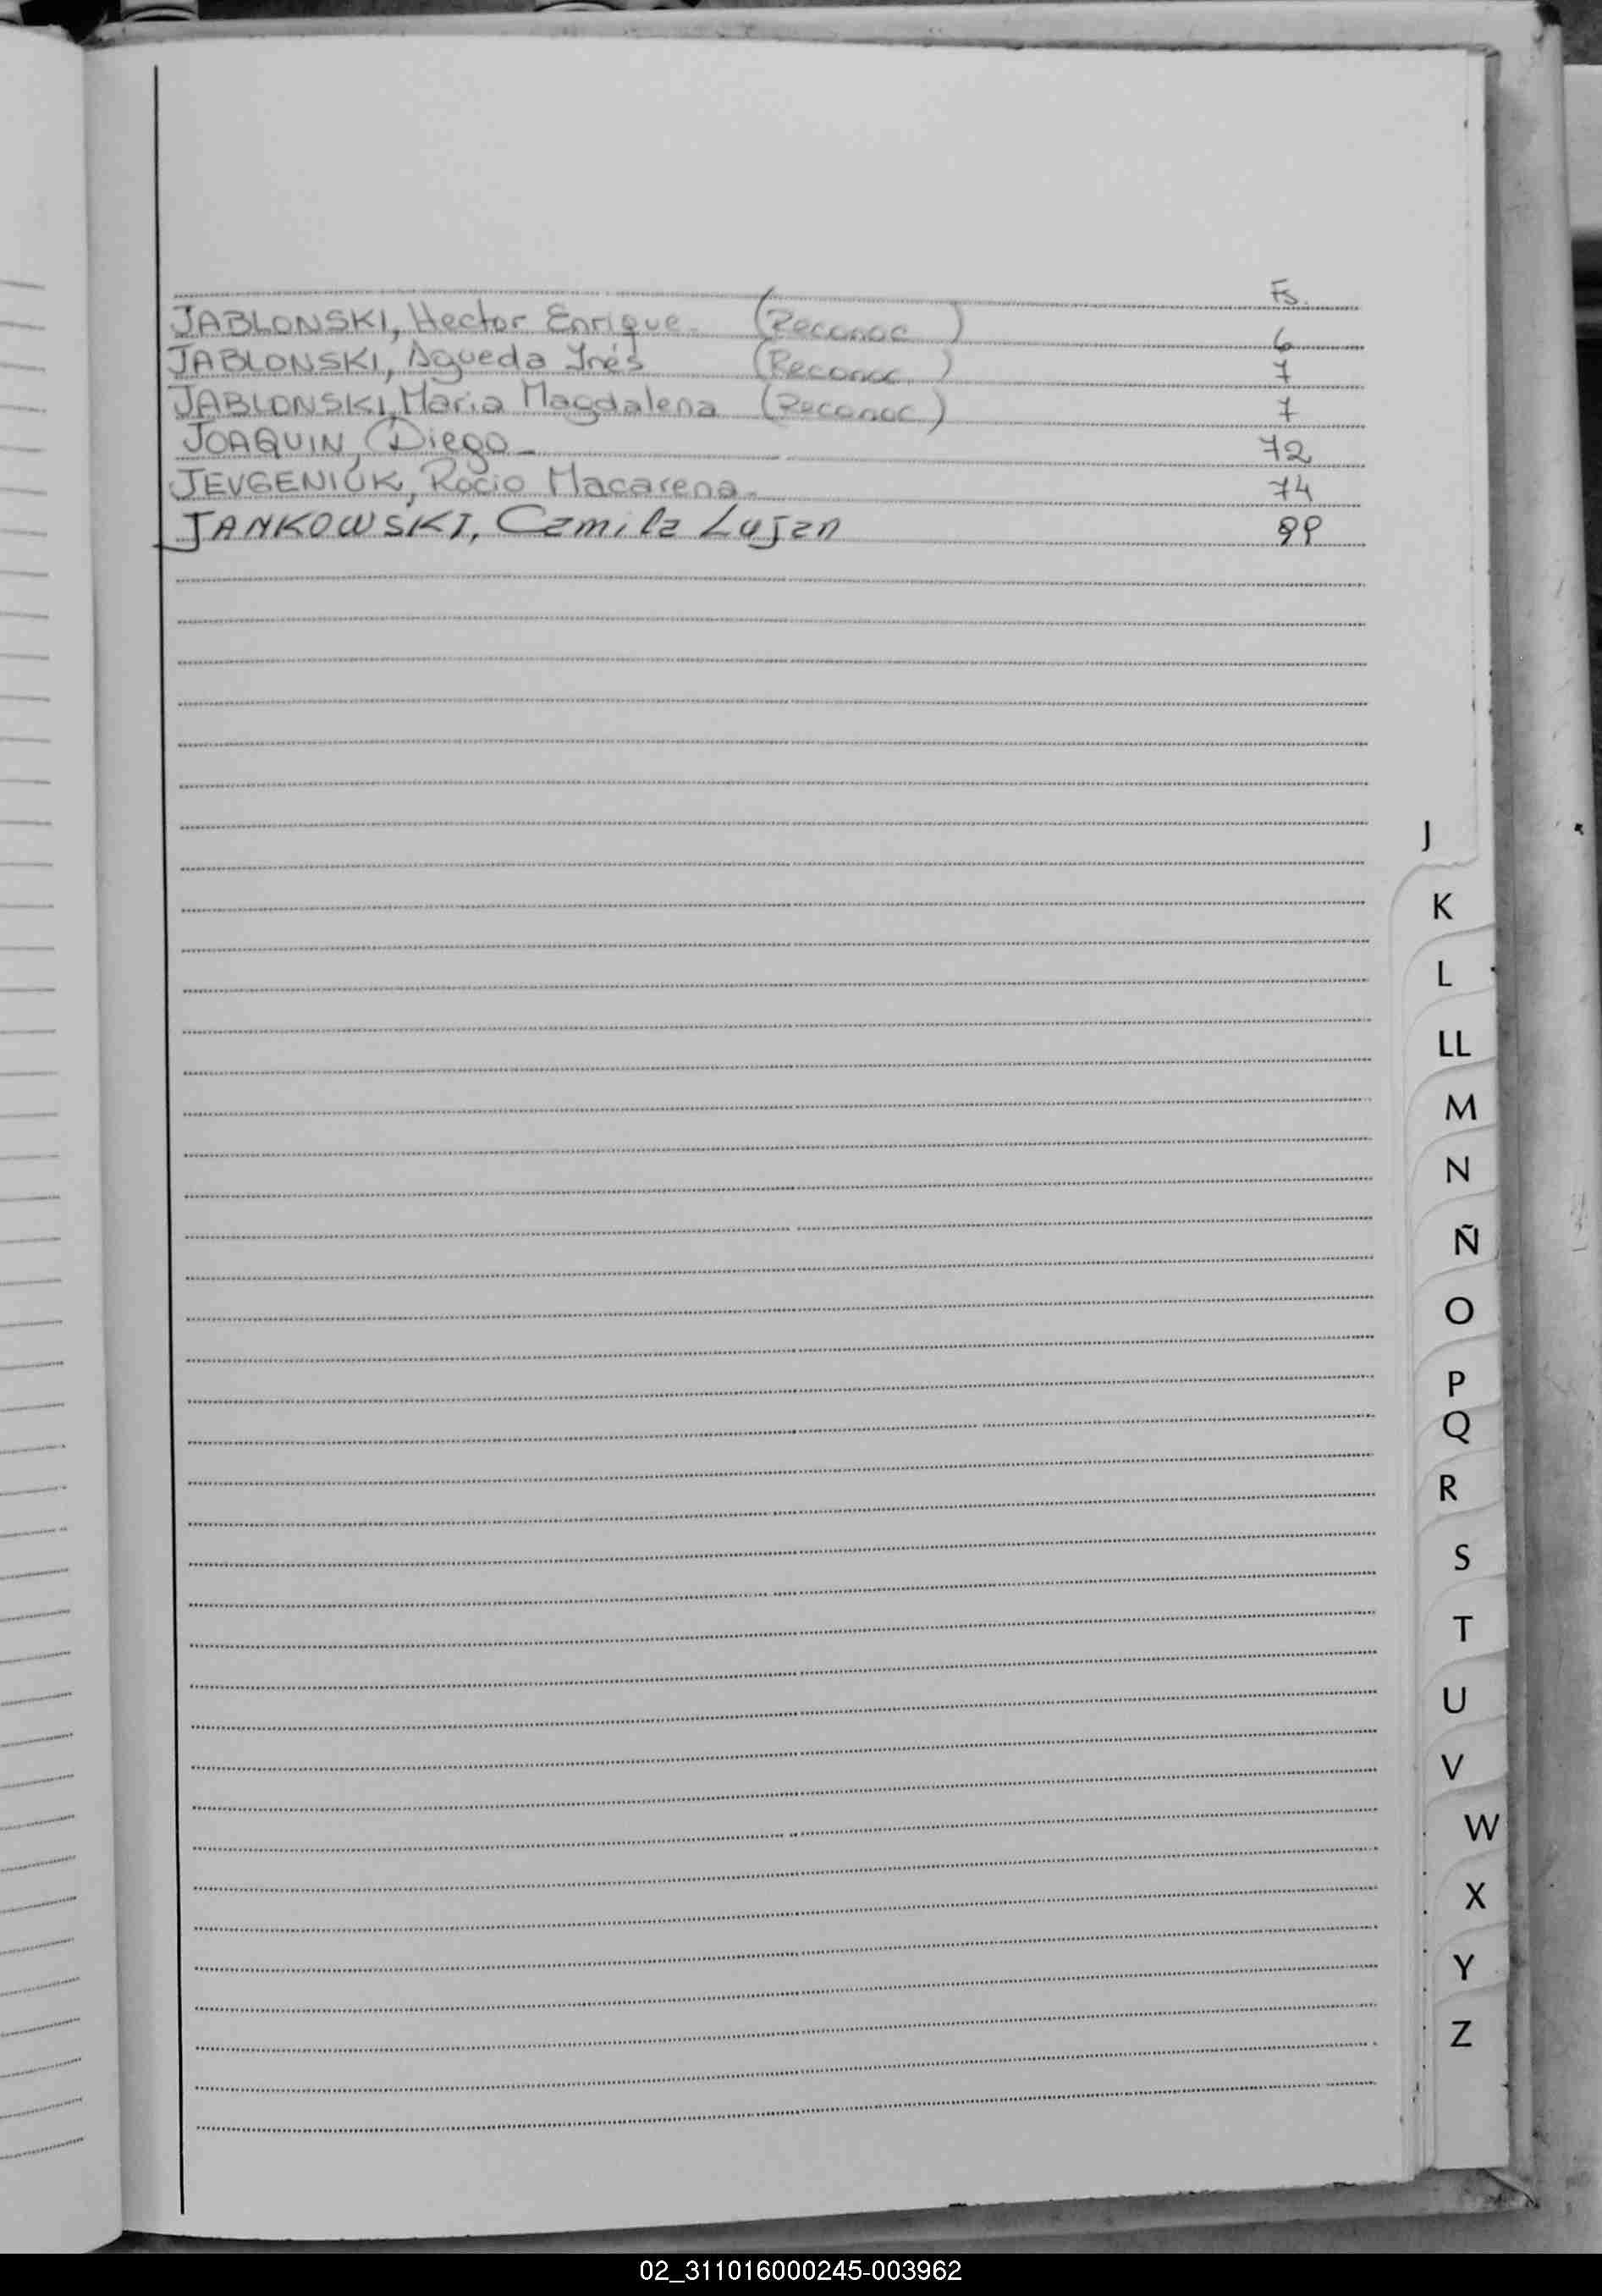 Fs.
JABLONSKI, Hector Enrique. (Reconoc) 6
JABLONSKI, Agueda Inés (Reconoc.) 7
JABLONSKI, Maria Magdalena (Reconoc) 7
JOAQUIN, Diego_ 72
JEVGENIUK, Rocio Macarena. 74
JANKOWSKI, Camila Lujan
J
K
L
LL
M
N
Ñ
O
P
Q
R
S
T
U
V
W
X
Y
Z
02_311016000245-003962